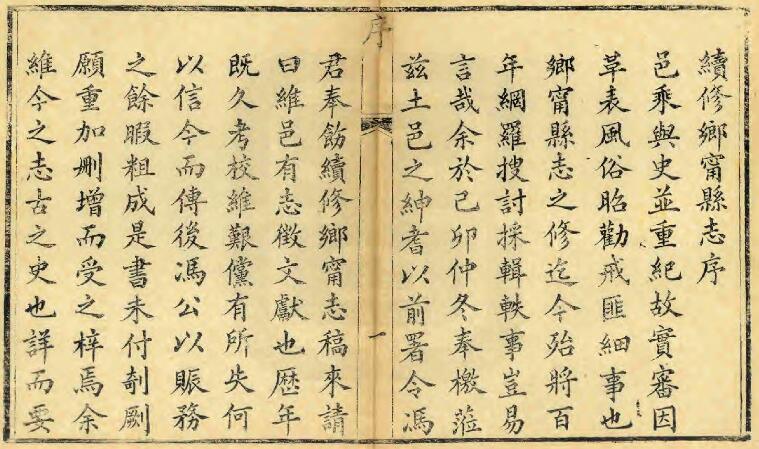 續修鄉甯縣志序
邑乘與史並重紀故實審因
革表風俗昭勸戒匪細事也
鄉甯縣志之修迄今殆將百
年網羅搜討採輯軼事豈易
言哉余於己卯仲冬奉檄蒞
兹土邑之紳耆以前署令馮
序
一
君奉飭續修鄉甯志稿來請
曰維邑有志徵文獻也歷年
既久考校維艱儻有所失何
以信今而傳後馮公以賑務
之餘暇粗成是書未付剞劂
願重加刪增而受之梓焉余
維今之志古之史也詳而要